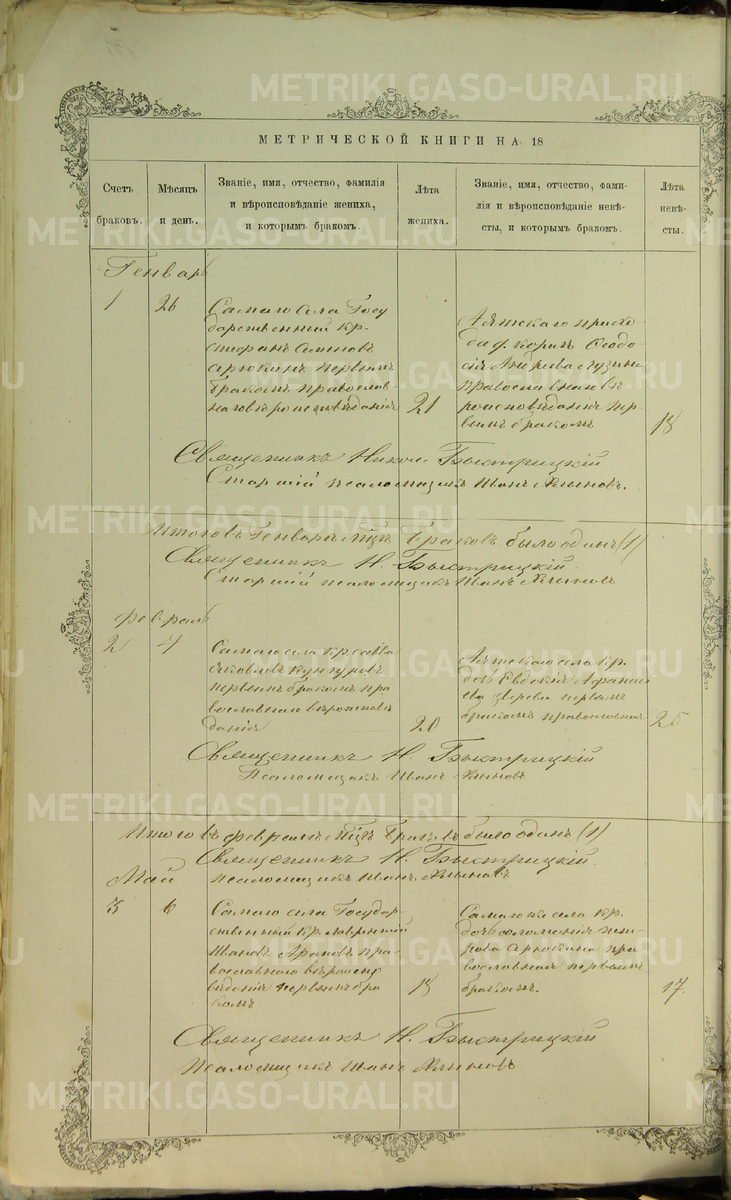 METRIKI.GASO-URAL.RU
МЕТРИЧЕСКОЙ КНИГИ НА 18
Счетъ браковъ.
Мѣсяцъ и день.
Званіе, имя, отчество, фамилія
и вѣроисповѣданіе жениха,
и которымъ бракомъ.
Лѣта жениха.
Званіе, имя, отчество, фами-
лія и вѣроисповѣданіе невѣ-
сты, и которымъ бракомъ.
Лѣта невѣ-
сты.
Генварь
1
26
Самаго села Госу
дарственный кр.
Стефанъ Семеновъ
первымъ
бракомъ православ
наго вѣроисповѣданія
21
Аятскаго прихо
да Ѳеодо
сія Андреева
православнаго вѣ
роисповѣданія пер
вымъ бракомъ
18
Священникъ Быстрицкій
Старшій псаломщикъ Иванъ
Итого въ Генварѣ м-цѣ браковъ было одинъ (1)
Священникъ Н. Быстрицкій
Старшій псаломщикъ Иванъ
Февраль
2
4
Самаго села кр. Савва
Яковлевъ
первымъ бракомъ пра
вославнаго вѣроисповѣ
данія
20
Аятскаго села кр.
дочь Евдокія Афанась
ева Звѣрева первымъ
бракомъ православная
25
Священникъ Н. Быстрицкій
Псаломщикъ Иванъ
Итого въ Февралѣ м-цѣ браковъ было одинъ (1)
Священникъ Н. Быстрицкій.
Май
Псаломщикъ Иванъ
3
6
Самаго села Государ-
ственный кр. Лаврентій
Ивановъ пра-
вославнаго вѣроиспо
вѣданія первымъ бра
комъ
18
Самаго же села кр.
дочь
пра
вославная первымъ
бракомъ.
17.
Священникъ Н. Быстрицкій
Псаломщикъ Иванъ